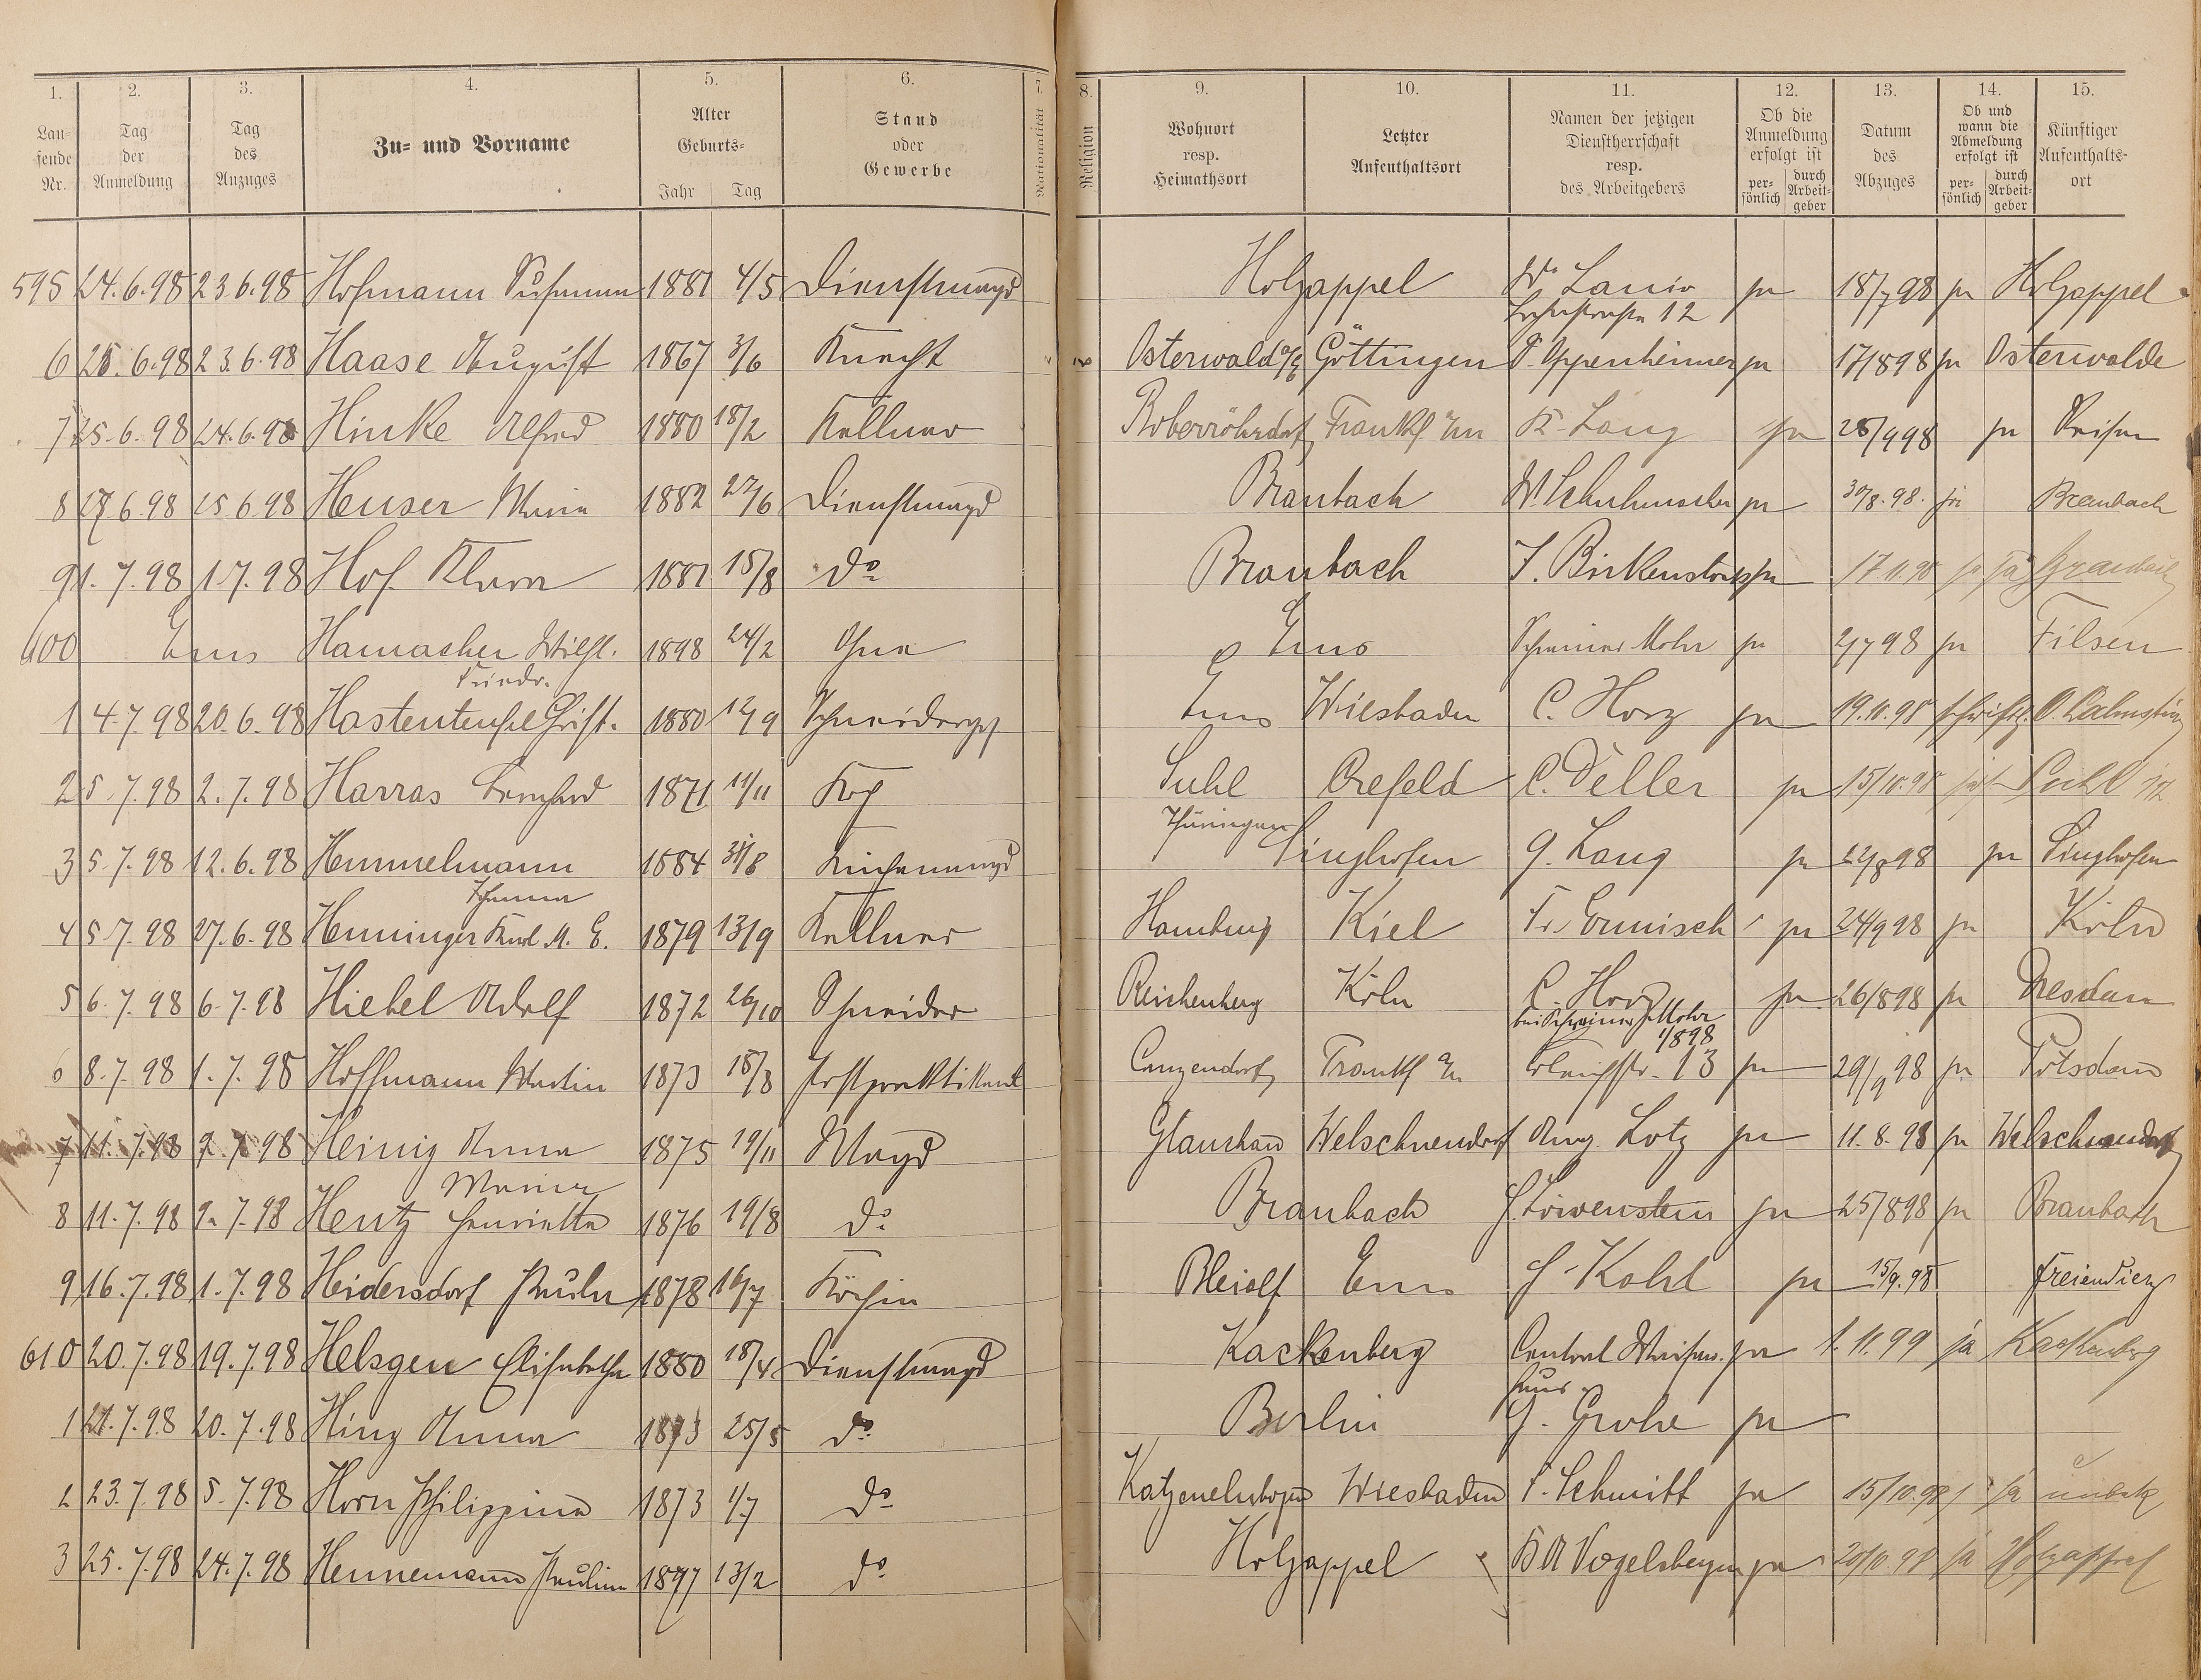 1. 2. 3. 4. 5. 6. 7. 8. 9. 10. 11. 12. 13. 14. 15.
Lau- fende Nr. Tag der Anmeldung Tag des Anzuges Zu- und Vorname Alter Geburts- Jahr Tag Stand oder Gewerbe Nationalität Religion Wohnort resp. Heimathsort Letzter Aufenthaltsort Namen der jetzigen Dienstherrschaft resp. des Arbeitgebers Ob die Anmeldung erfolgt ist per- sönlich durch Arbeit- geber Datum des Abzuges Ob und wann die Abmeldung erfolgt ist per- sönlich durch Arbeit- geber Künftiger Aufenthalts- ort
595 24.6.98 23.6.98 Hofmann Susanna 1881 4/5 Dienstmagd Holzappel W. Lanio ja 18/7 98 ja Holzappel
12
6 25.6.98 23.6.98 Haase August 1867 3/6 Knecht Osterwald Göttingen Oppenheimer ja 17/8 98 ja Osterwalde
7 25.6.98 24.6.98 Hinke Alfred 1880 18/2 Kellner Boberröhrsdorf Frankf a/m K. Lang ja 28/9 98 ja Reisen
8 27.6.98 25.6.98 Heuser Maria 1882 22/6 Dienstmagd Braubach W. Schuhmacher ja 30/8.98. ja Braubach
9 1.7.98 1.7.98 Hof Klara 1881 15/8 do Braubach J. Birkenstock ja 17.11.98 ja Braubach
600 Ems Hamacher Wilh. 1898 24/2 Ohne Ems Schreiner Mohr ja 2/7 98 ja Filsen
Friedr.
1 4.7.98 20.6.98 Hastenteufel Christ. 1880 12/9 Schneiderges. Ems Wiesbaden C. Horz ja 19.11.98 schriftl.
2 5.7.98 2.7.98 Harras Bernhard 1871 11/11 Koch Suhl Crefeld C. Deller ja 15/10.98 Suhl
Thüringen
3 5.7.98 12.6.98 Hemmelmann 1884 31/8 Küchenmagd Singhofen G. Lang ja 22/8 98 ja Singhofen
Johanna
4 5.7.98 27.6.98 Henninger Karl M. E. 1879 13/9 Kellner Hamburg Kiel Fr. Ermisch ja 24/9 98 ja Köln
5 6.7.98 6.7.98 Hiebel Adolf 1872 26/10 Schneider Reichenberg Köln C. Horz ja 26/8 98 ja Dresden
bei Schreiner Mohr 1/8 98
6 8.7.98 1.7.98 Hoffmann Martin 1873 18/8 Postpraktikant Frankf a/m 13 ja 29/9 98 ja Potsdam
7 11.7.98 9.7.98 Heinig Anna 1875 19/11 Magd Glauchau Welschneudorf Aug. Lotz ja 11.8.98 ja Welschneudorf
Maria
8 11.7.98 9.7.98 Hentz Henriette 1876 19/8 do Braubach J. Löwenstein ja 25/8 98 ja Braubach
9 16.7.98 1.7.98 Heidersdorf Paula 1878 16/7 Köchin Bleialf Ems H. Kohl ja 15/9.98 Freiendiez
610 20.7.98 19.7.98 Helsgen Elisabetha 1880 18/4 Dienstmagd Kackenberg Central Waisen- ja 1.11.99 ja Kackenberg
haus
1 21.7.98 20.7.98 Hinz Anna 1873 25/5 do Berlin G. Grohe ja
2 23.7.98 5.7.98 Horn Philippine 1873 1/7 do Katzenelnbogen Wiesbaden Schmitt ja 15/10.98 ja unbek
3 25.7.98 24.7.98 Hennemann Pauline 1877 13/2 do Holzappel Vogelsberger ja 20/10.98 ja Holzappel